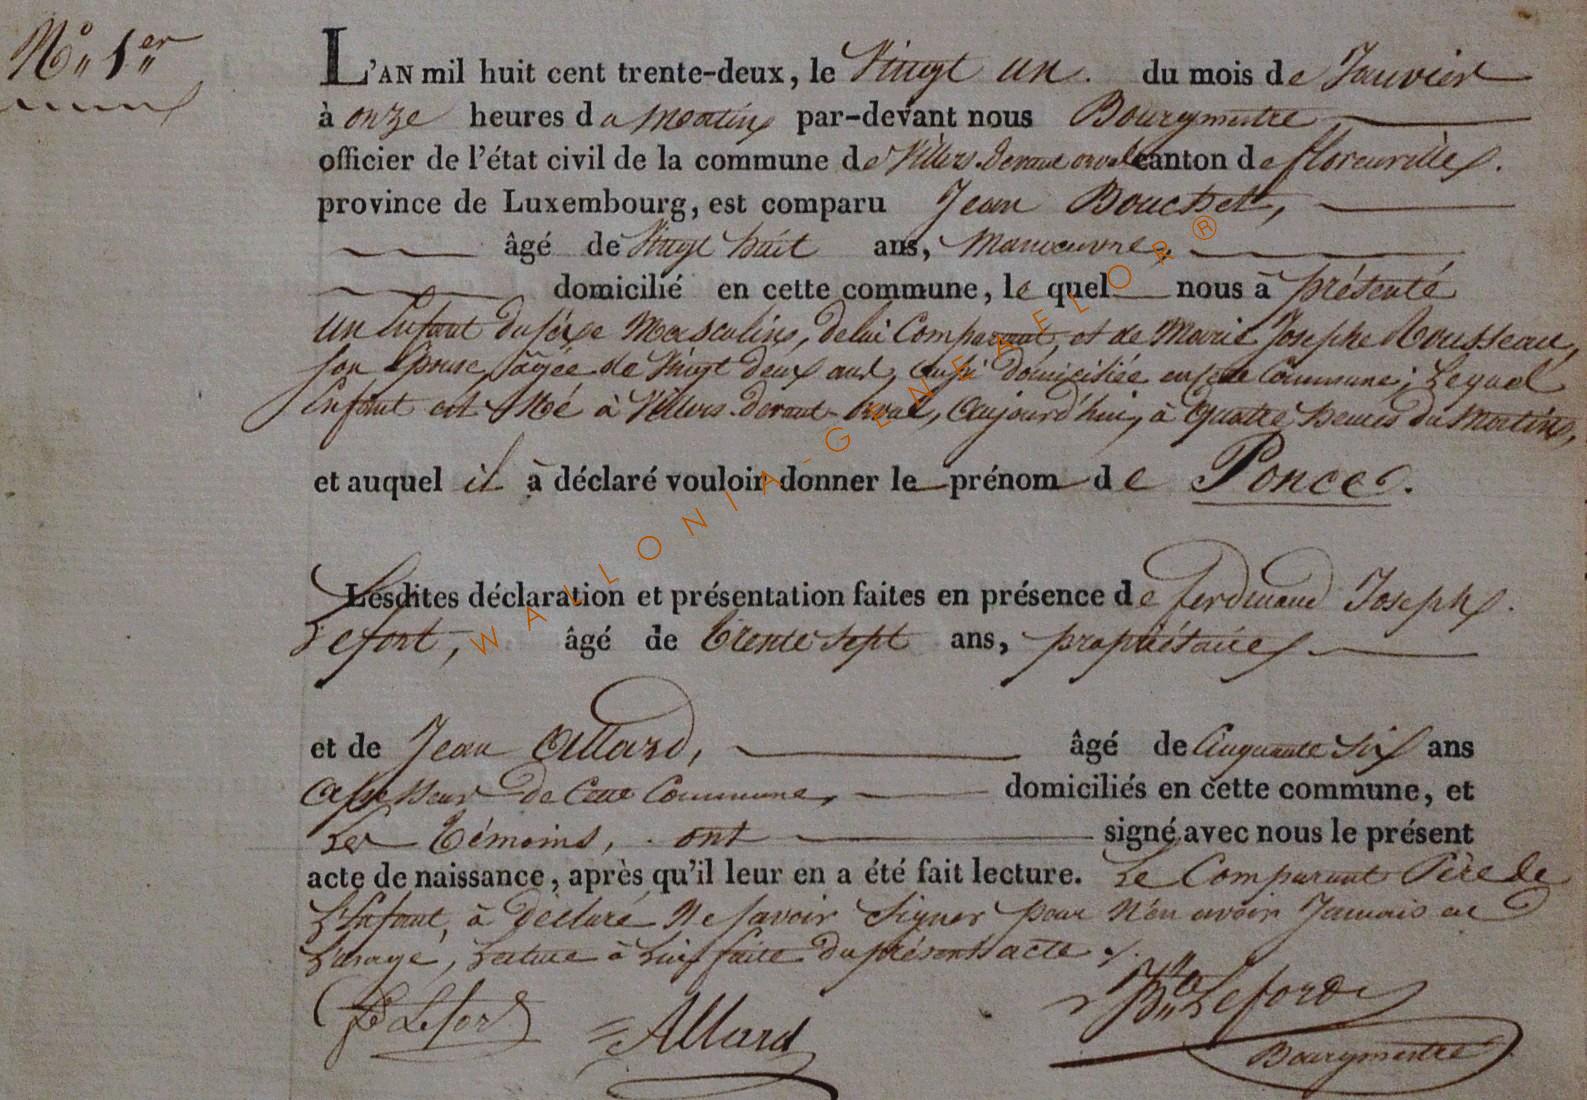 N.° 1.er
L'AN mil huit cent trente-deux, le Vingt un. du mois de Janvier
à onze heures du Matin par-devant nous Bourgmestre
officier de l'état civil de la commune de Villers devant orval canton de florenville.
province de Luxembourg, est comparu Jean Bouchet,
âgé de Vingt huit ans, Manœuvre,
domicilié en cette commune, le quel nous à présenté
un Enfant du sexe Masculin, de lui Comparant, et de Marie Josephe Rousseau,
son Epouse, âgée de Vingt deux ans, aussi domiciliée en cette Commune; Lequel
Enfant est Né à Villers-devant-orval, aujourd'hui, à quatre heures du Matin,
et auquel il à déclaré vouloir donner le prénom de Ponce.
Lesdites déclaration et présentation faites en présence de ferdinand Joseph
Lefort, âgé de trente sept ans, propriétaire
et de Jean Allard, âgé de Cinquante six ans
assesseur de Cette Commune, domiciliés en cette commune, et
Les témoins, ont signé avec nous le présent
acte de naissance, après qu'il leur en a été fait lecture. Le Comparant Père de
L'Enfant, à déclaré Ne savoir signer pour N'en avoir Jamais eu
L'usage, Lecture à Lui faite du présent acte.
Lefort Allard Leford
Bourgmestre
WALLONIA-GENEAFLOR®